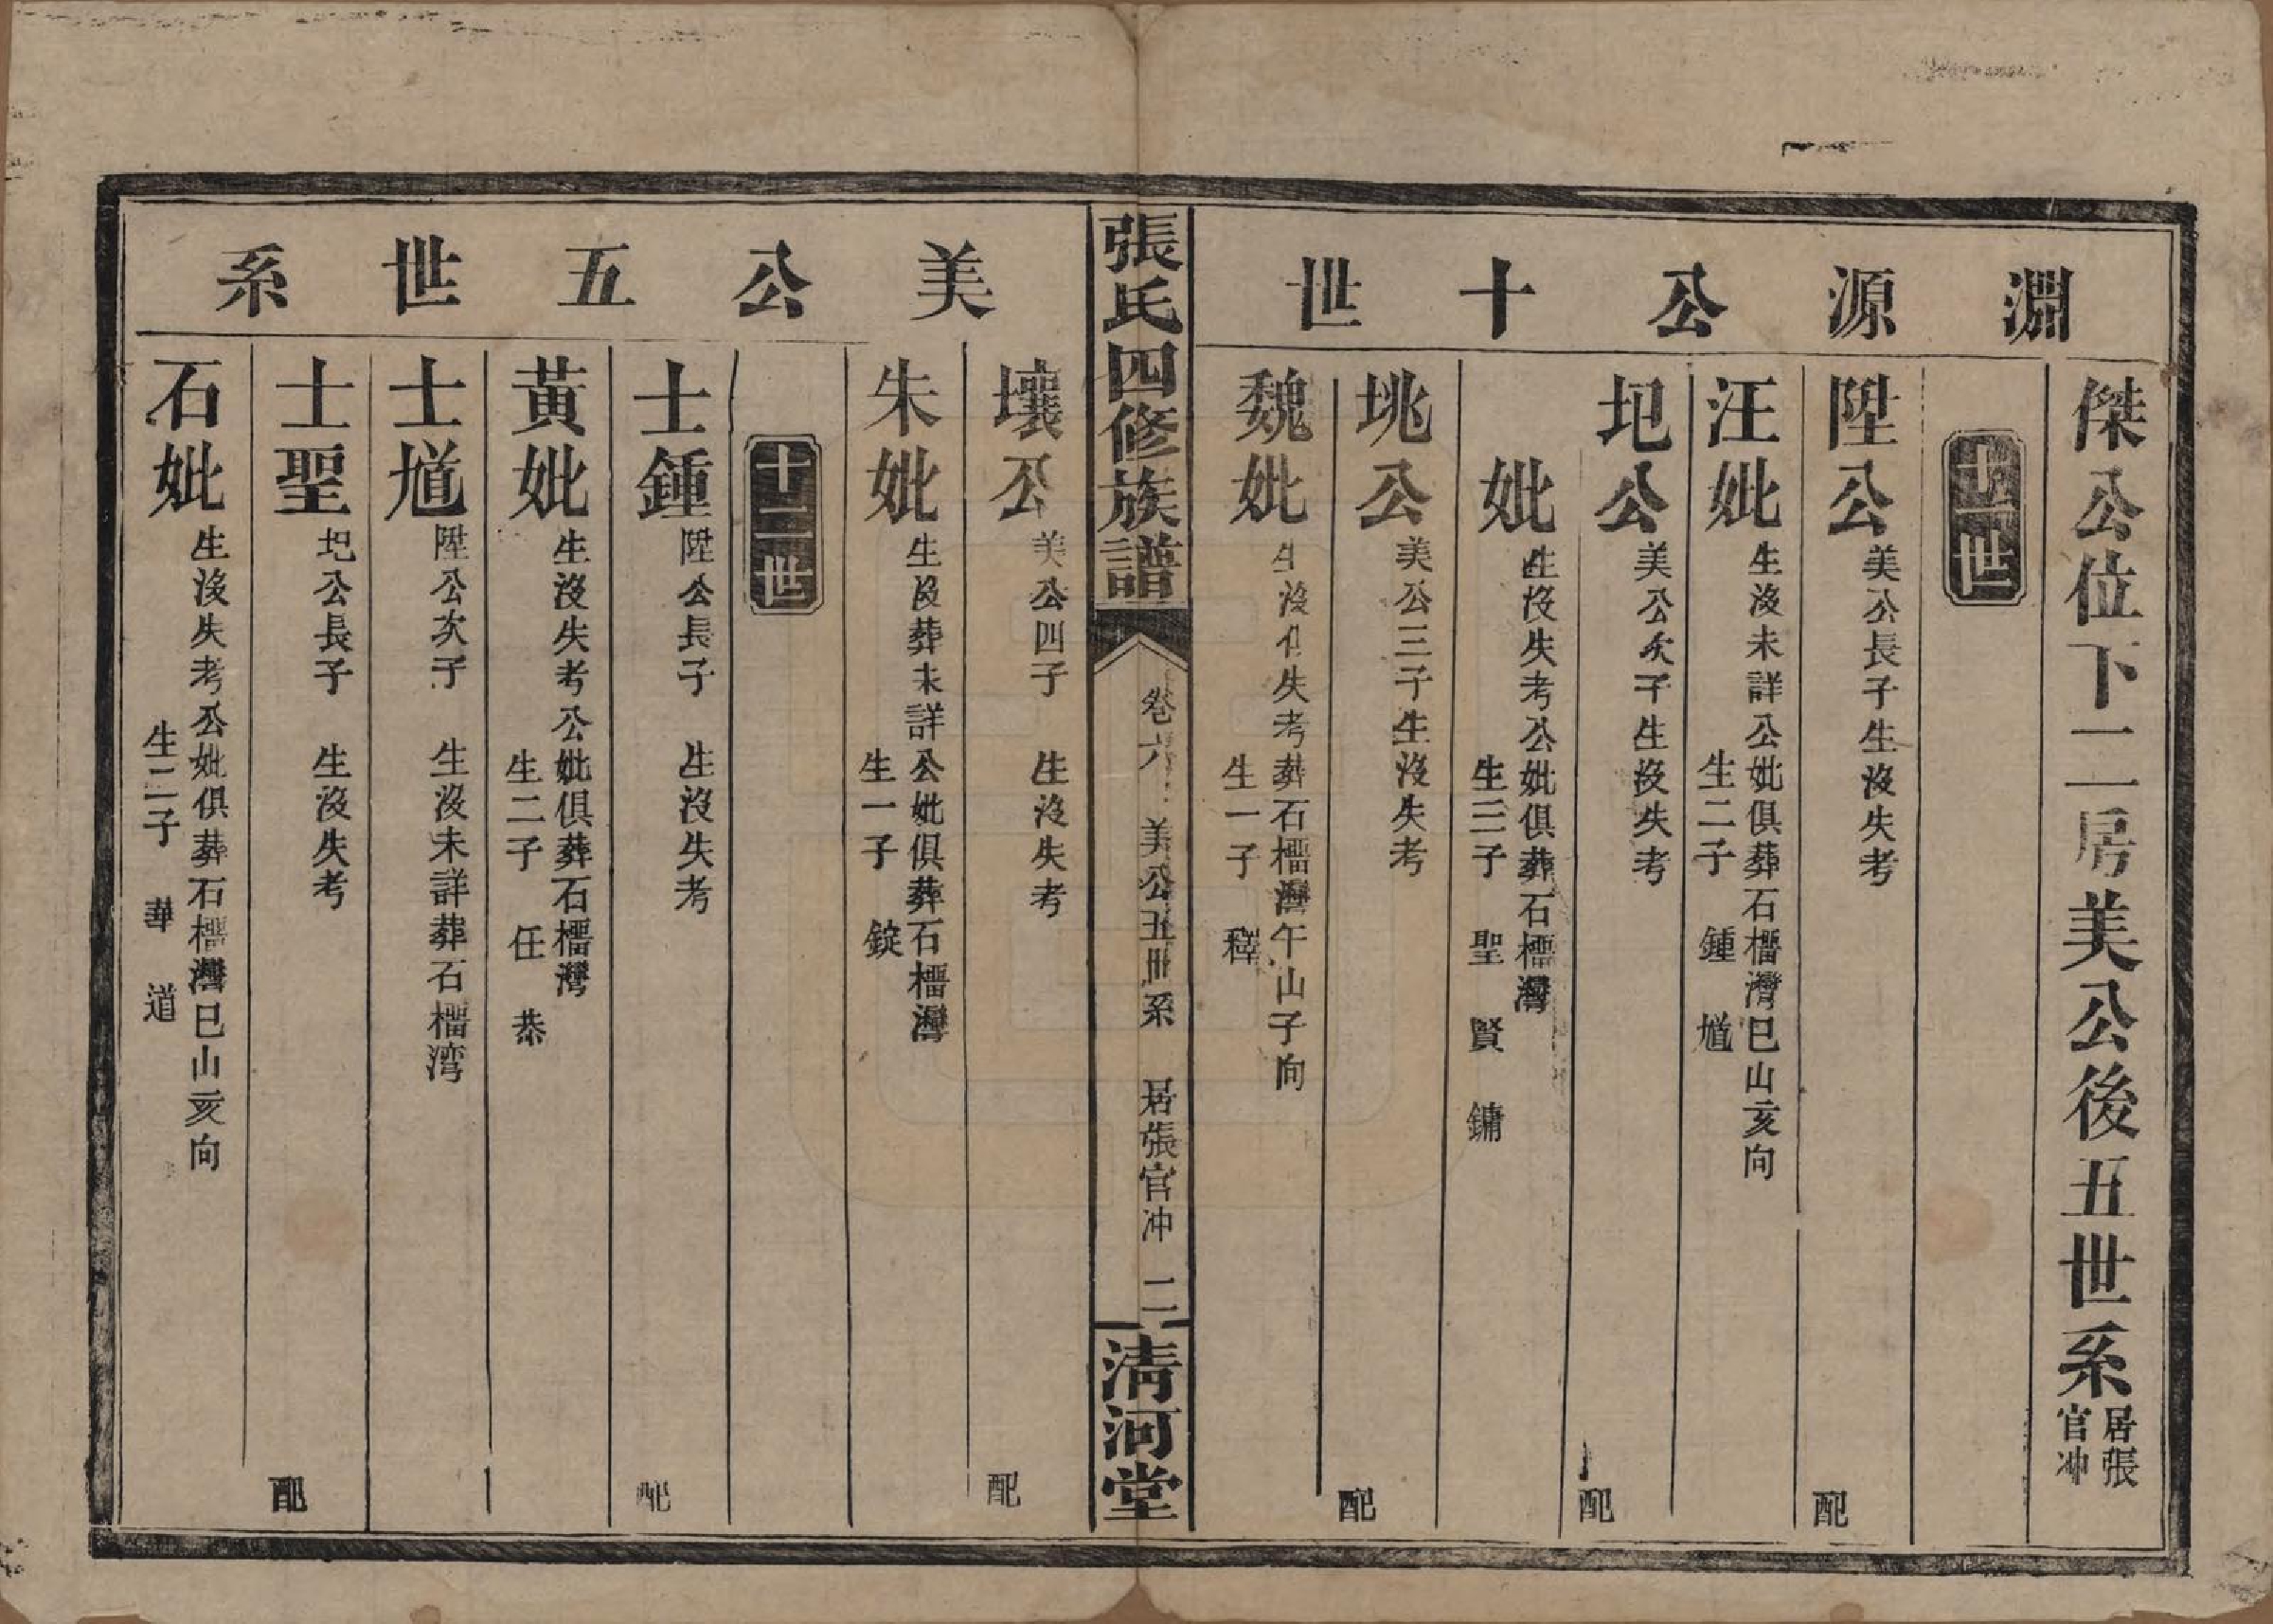 淵源公十世
傑公位下二房美公後五世系 居張官冲
十一世
陞公 美公長子生沒失考 配
汪妣 生沒未詳公妣俱葬石橊灣巳山亥向
生二子 鍾 馗
圯公 美公次子生沒失考 配
妣 生沒失考公妣俱葬石橊灣
生三子 聖 賢 鏞
垗公 美公三子生沒失考 配
魏妣 生沒俱失考葬石橊灣午山子向
生一子 釋
張氏四修族譜 卷六 美公五世系 居張官冲 二 清河堂
美公五世系
壤公 美公四子 生沒失考 配
朱妣 生沒葬未詳公妣俱葬石橊灣
生一子 錠
十二世
士鍾 陞公長子 生沒失考 配
黃妣 生沒失考公妣俱葬石橊灣
生二子 任 恭
士馗 陞公次子 生沒未詳葬石橊湾
士聖 圯公長子 生沒失考 配
石妣 生沒失考公妣俱葬石橊灣巳山亥向
生二子 華 道